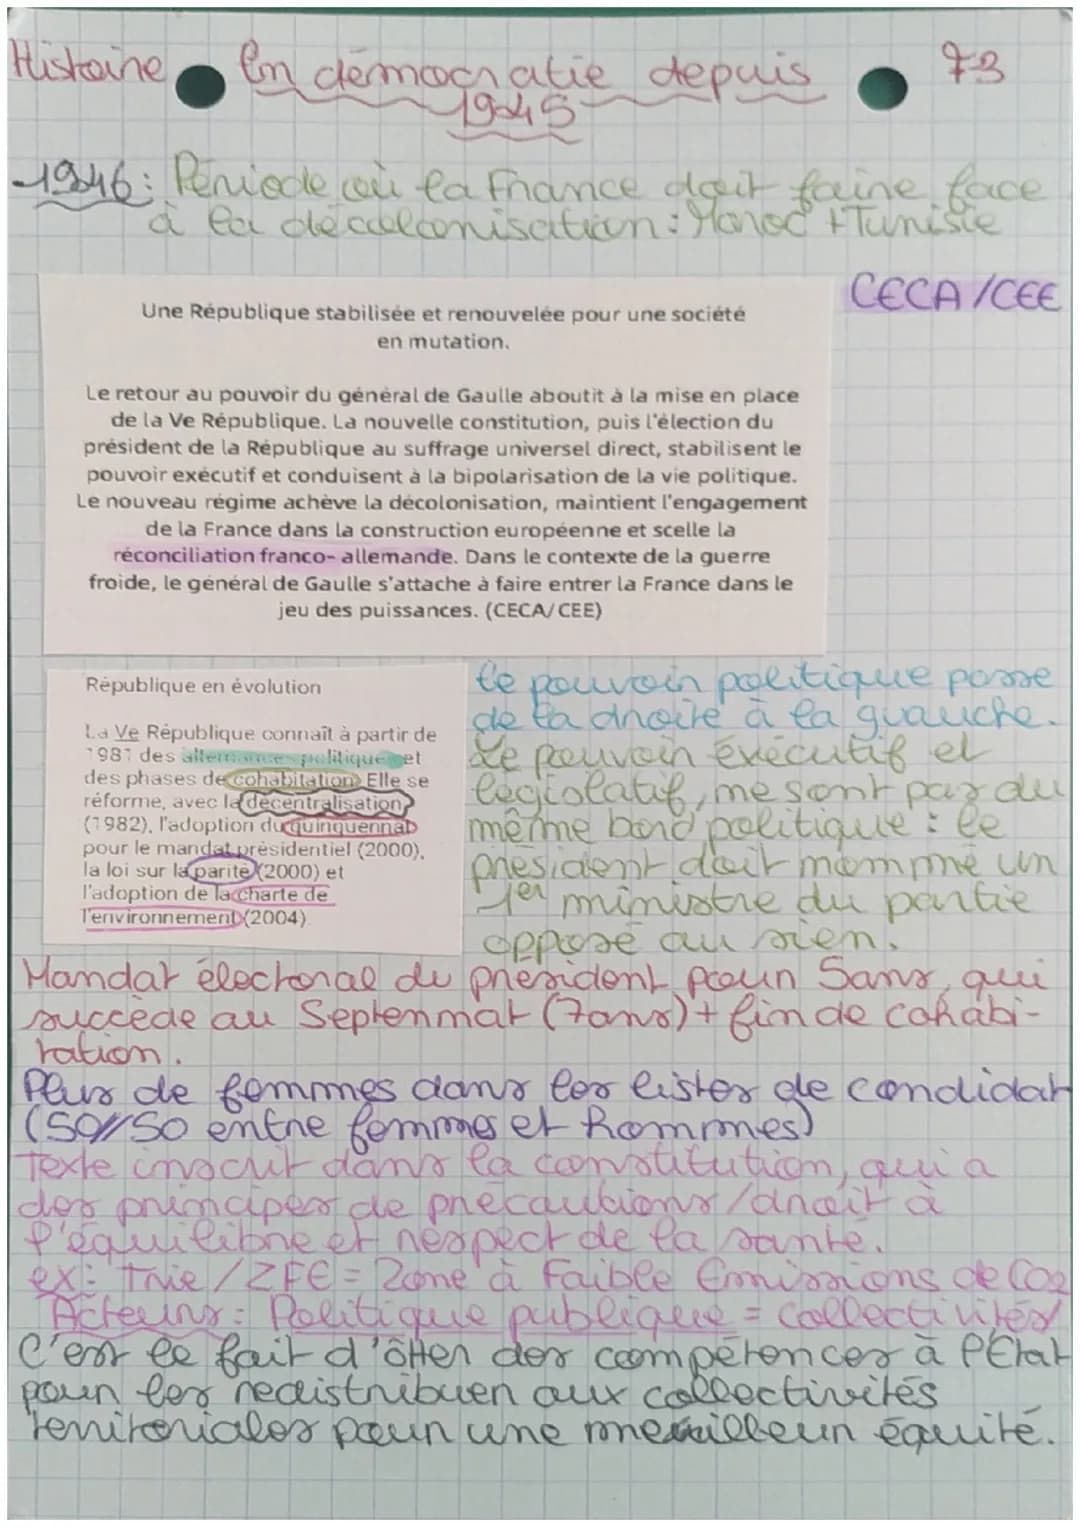 Histoire En démocratie depuis 73
1945
1946: Période où la France doit faire face
à la décolonisation : Maroc + Tunisie
CECA/CEE
Une République stabilisée et renouvelée pour une société
en mutation.
Le retour au pouvoir du général de Gaulle aboutit à la mise en place
de la Ve République. La nouvelle constitution, puis l'élection du
président de la République au suffrage universel direct, stabilisent le
pouvoir exécutif et conduisent à la bipolarisation de la vie politique.
Le nouveau régime achève la décolonisation, maintient l'engagement
de la France dans la construction européenne et scelle la
réconciliation franco- allemande. Dans le contexte de la guerre
froide, le général de Gaulle s'attache à faire entrer la France dans le
jeu des puissances. (CECA/CEE)
République en évolution
La Ve République connaît à partir de
1981 des alternances politiques et
des phases de cohabitation. Elle se
réforme, avec la décentralisation
(1982), l'adoption du quinquennat
pour le mandat présidentiel (2000),
la loi sur la parité (2000) et
l'adoption de la charte de
l'environnement (2004).
Le pouvoir politique passe
de la droite à la guauche.
Le pouvoir éxécutif et
législatif, ne sont pas du
même bord politique : le
président doit nommé un
1er ministre du partie
opposé au sien.
Mandat électoral du président pour 5ans, qui
succède au Septennat (7ans) + fin de cohabi-
tation.
Plus de femmes dans les listes de candidat
(50//50 entre femmes et hommes)
Texte inscrit dans la constitution, qui a
des principes de précautions/droit à
l'équilibre et respect de la santé.
ex: Trie/ZFE = Zone à Faible Emissions de CO2
Acteurs : Politique publique = collectivités
C'est le fait d'ôtter des compétences à l'Etat
pour les redistribuer aux collectivités
territoriales pour une meuilleur équité.